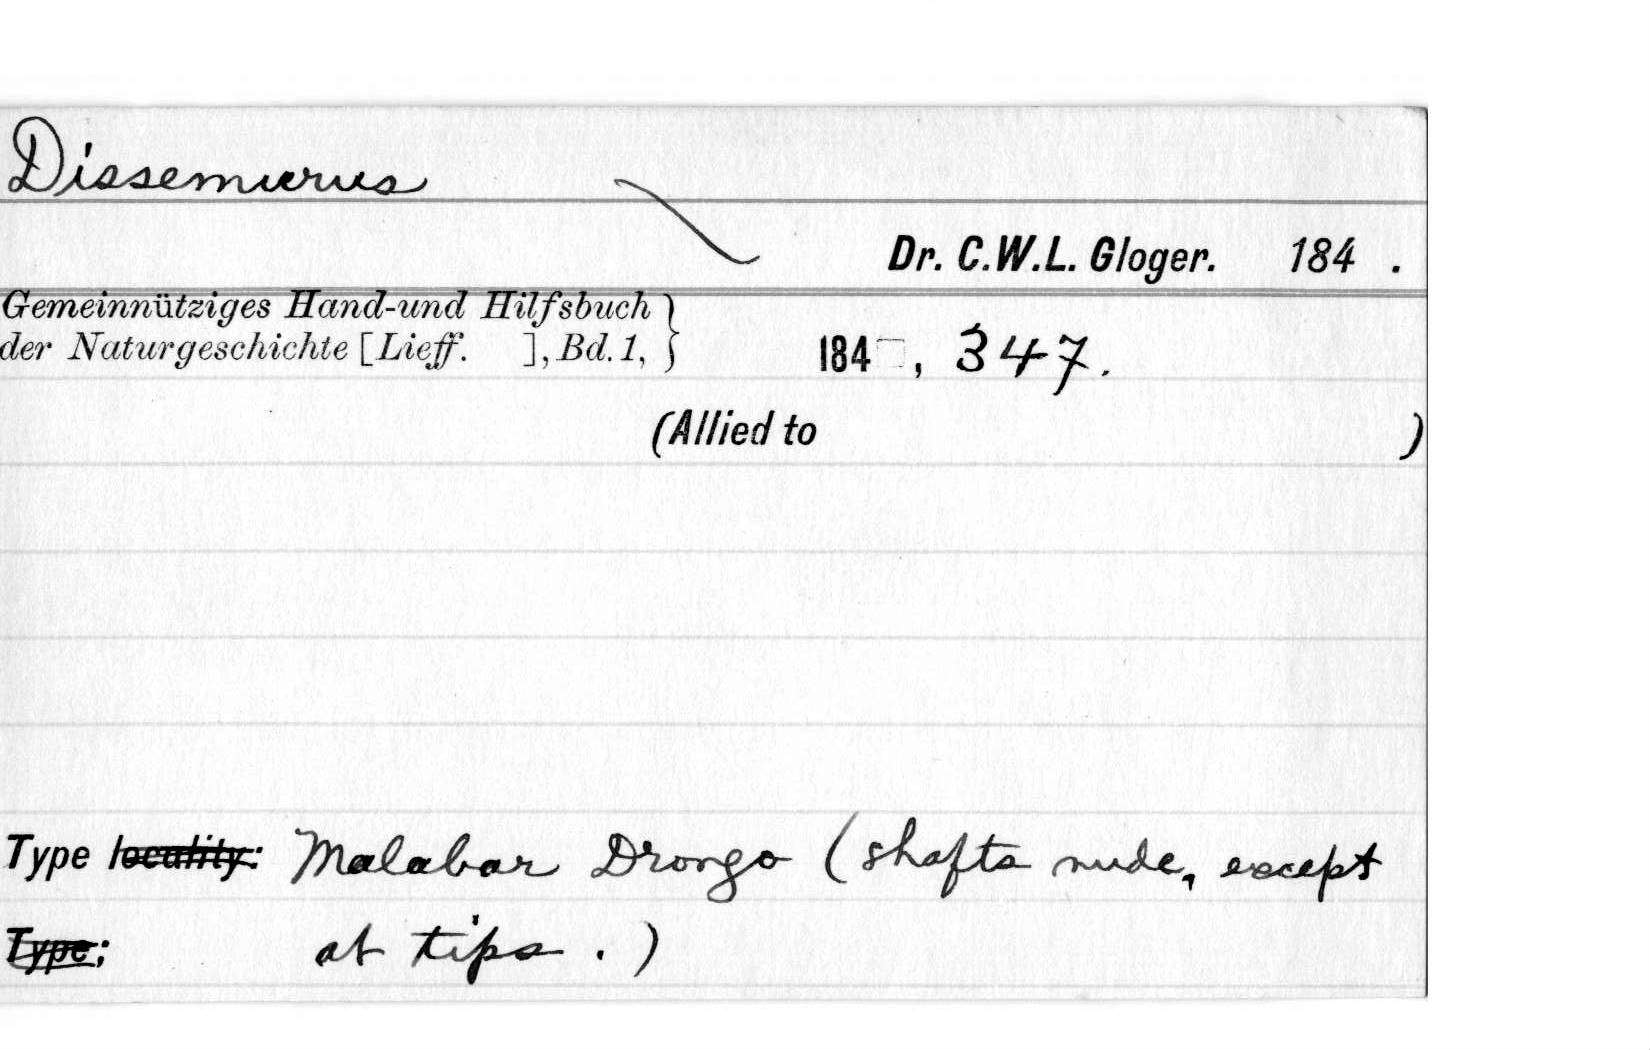 Dissemurus
Dr. C.W.L. Gloger. 184 .
Gemeinnütziges Hand-und Hilfsbuch
der Naturgeschichte [Lieff. ], Bd. 1, } 184 , 347.
(Allied to )
Type locality: Malabar Drongo (shafts nude, except
Type: at tips . )